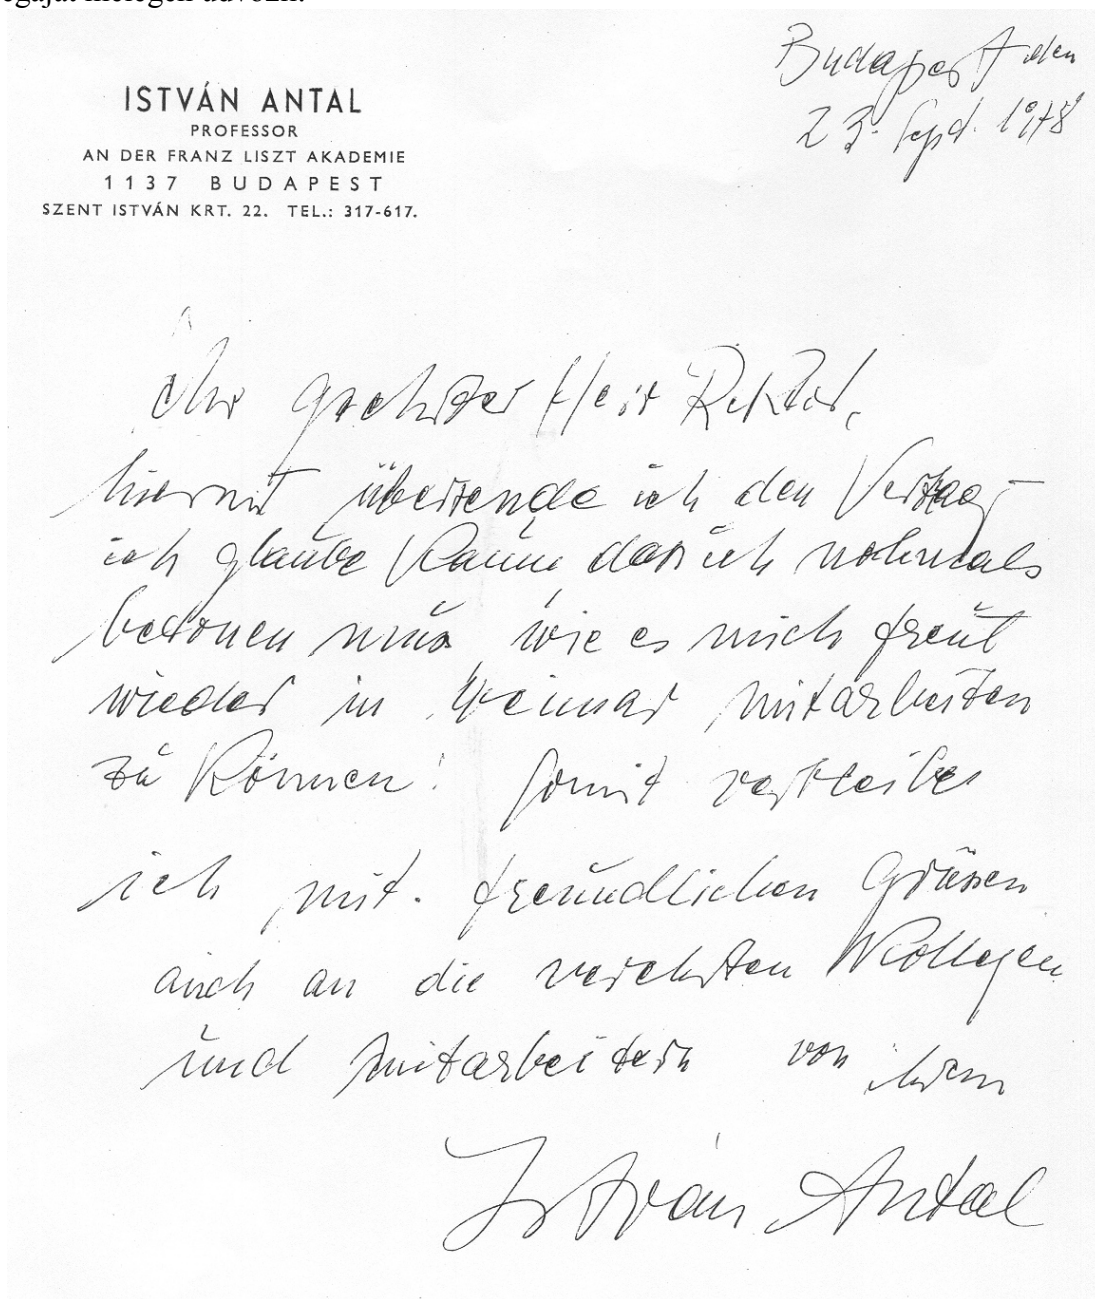 egáját melegen üdvözli.
ISTVÁN ANTAL
PROFESSOR
AN DER FRANZ LISZT AKADEMIE
1137 BUDAPEST
SZENT ISTVÁN KRT. 22. TEL.: 317-617.
Budapest den
23. Sept. 1978
Sehr geehrter Herr Rektor,
hiermit übersende ich den Vertrag
ich glaube kaum, dass ich nochmals
betonen muss wie es mich freut
wieder in Weimar mitarbeiten
zu können! Somit verbleibe
ich mit freundlichen Grüssen
auch an die verehrten Kollegen
und Mitarbeitern von ihrem
István Antal